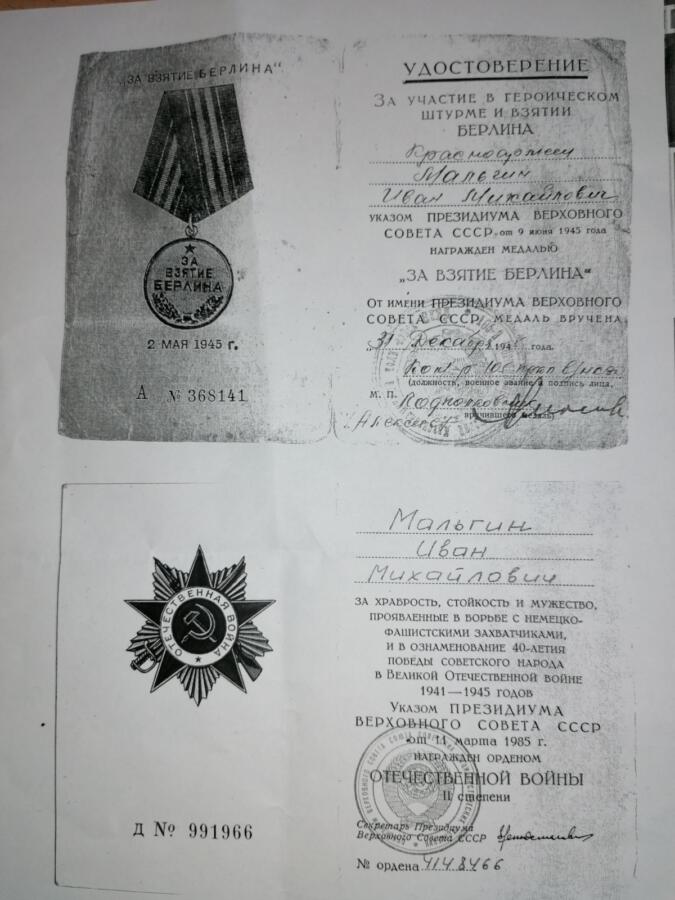 „ЗА ВЗЯТИЕ БЕРЛИНА“
ЗА
ВЗЯТИЕ
БЕРЛИНА
2 МАЯ 1945 г.
А № 368141
УДОСТОВЕРЕНИЕ
ЗА УЧАСТИЕ В ГЕРОИЧЕСКОМ
ШТУРМЕ И ВЗЯТИИ
БЕРЛИНА
Мальгин
Иван Михайлович
УКАЗОМ ПРЕЗИДИУМА ВЕРХОВНОГО
СОВЕТА СССР от 9 июня 1945 года
НАГРАЖДЕН МЕДАЛЬЮ
„ЗА ВЗЯТИЕ БЕРЛИНА“
ОТ ИМЕНИ ПРЕЗИДИУМА ВЕРХОВНОГО
СОВЕТА СССР МЕДАЛЬ ВРУЧЕНА
„31“ Декабря 194 года.
(должность, военное звание и подпись лица,
М. П. Подполковник
вручившего медаль)
Алексеев
ОТЕЧЕСТВЕННАЯ ВОЙНА
Д № 991966
Мальгин
Иван
Михайлович
ЗА ХРАБРОСТЬ, СТОЙКОСТЬ И МУЖЕСТВО,
ПРОЯВЛЕННЫЕ В БОРЬБЕ С НЕМЕЦКО-
ФАШИСТСКИМИ ЗАХВАТЧИКАМИ,
И В ОЗНАМЕНОВАНИЕ 40-ЛЕТИЯ
ПОБЕДЫ СОВЕТСКОГО НАРОДА
В ВЕЛИКОЙ ОТЕЧЕСТВЕННОЙ ВОЙНЕ
1941—1945 ГОДОВ
УКАЗОМ ПРЕЗИДИУМА
ВЕРХОВНОГО СОВЕТА СССР
от 11 марта 1985 г.
НАГРАЖДЕН ОРДЕНОМ
ОТЕЧЕСТВЕННОЙ ВОЙНЫ
II СТЕПЕНИ
Секретарь Президиума
Верховного Совета СССР
№ ордена 4148466